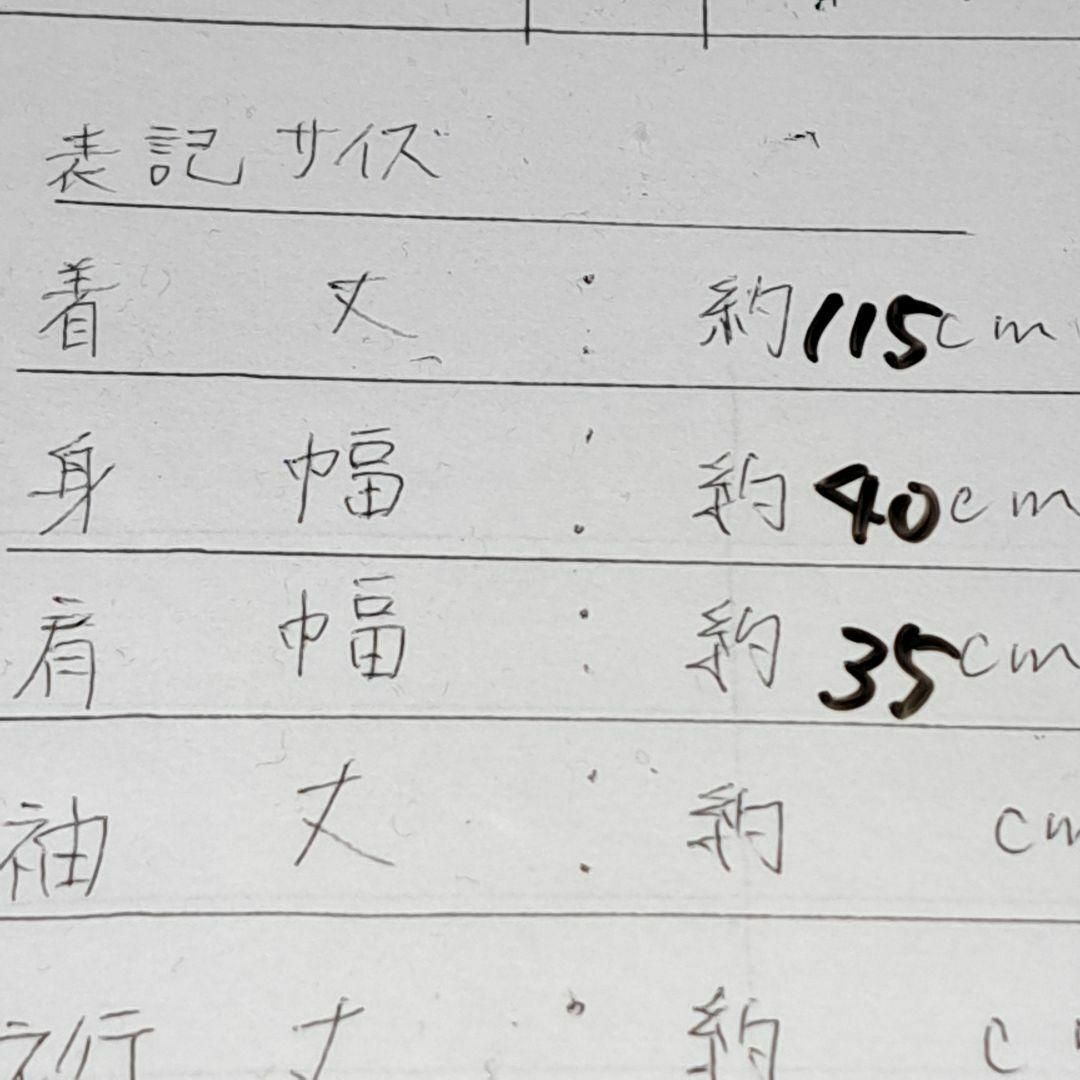 表記サイズ
着丈:約115cm
身幅:約40cm
肩幅:約35cm
袖丈:約 cm
裄丈:約 c